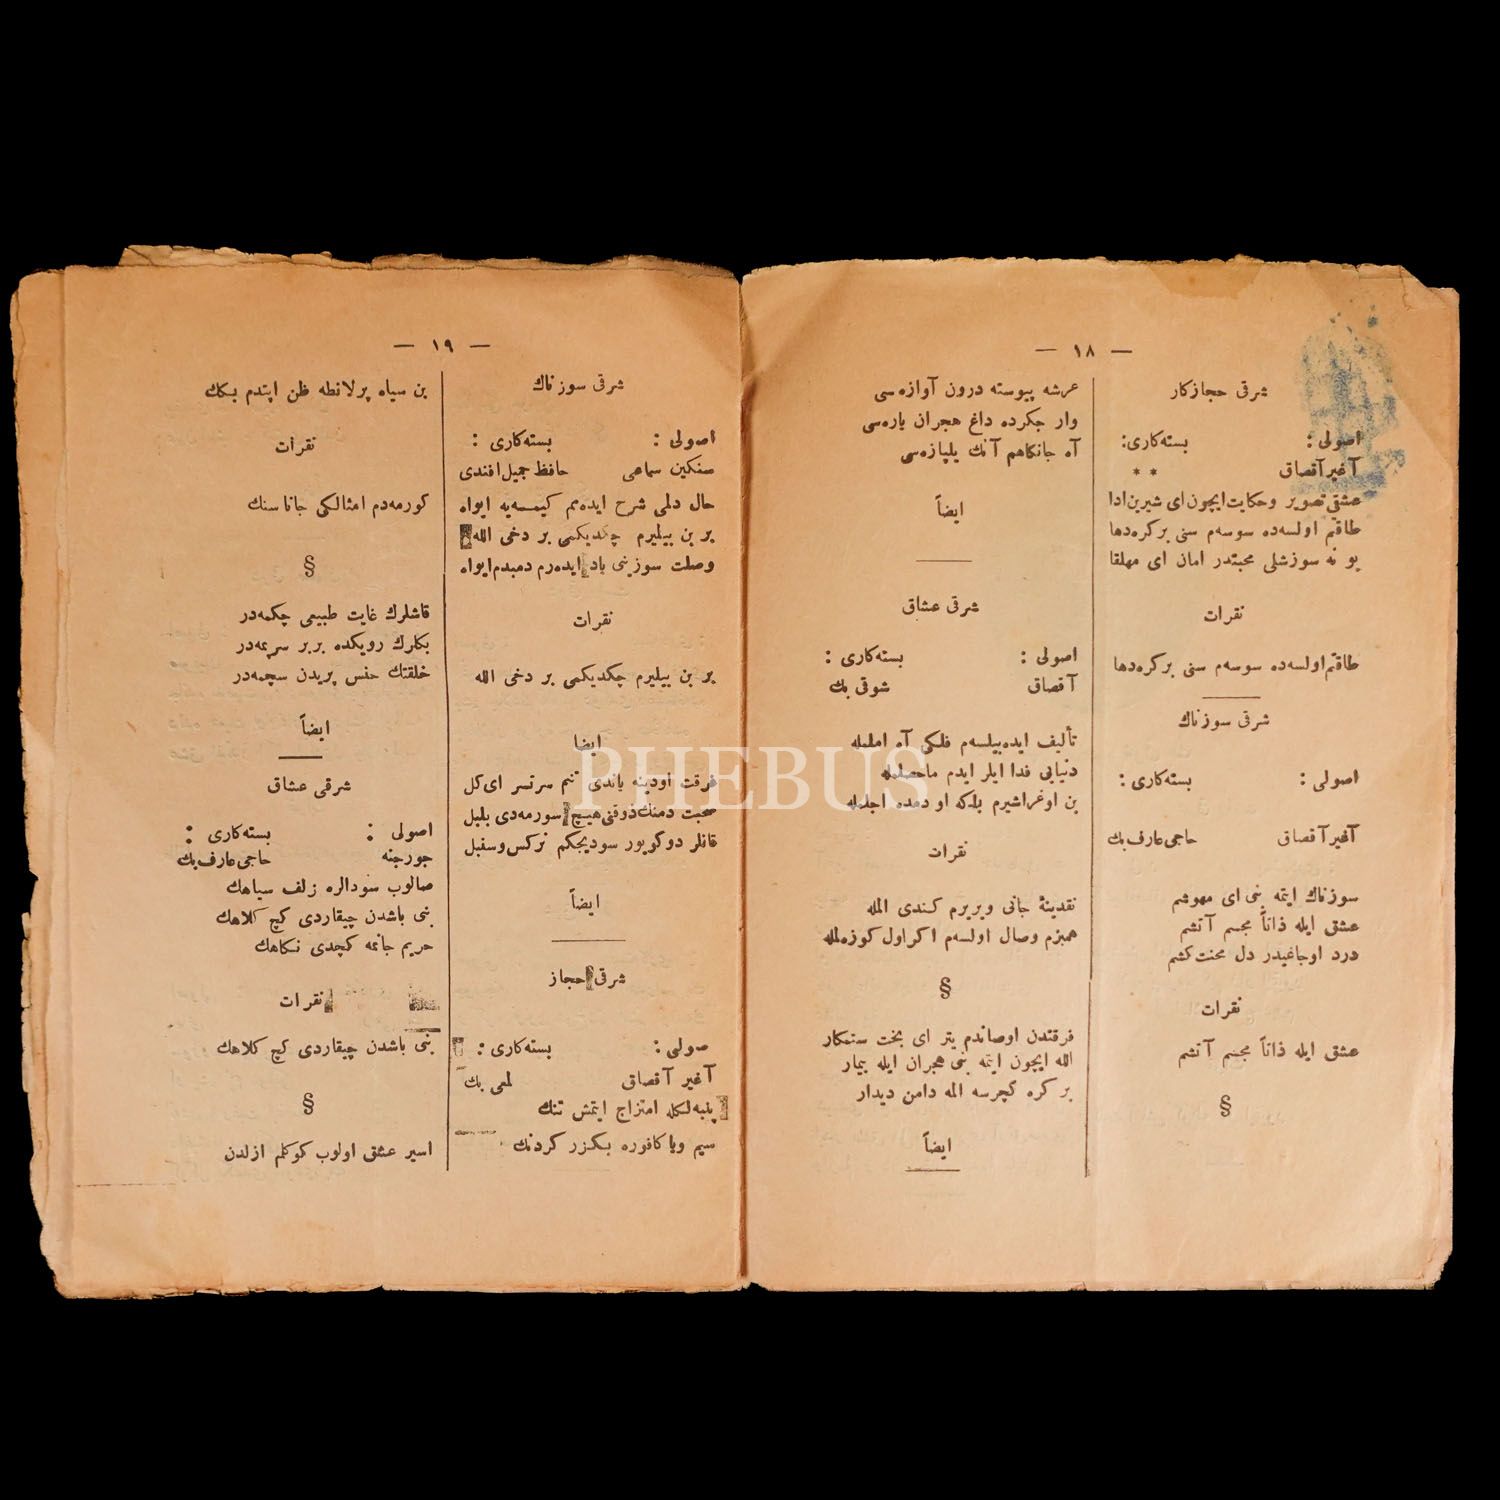 — ١٨ —
شرقی حجازكار
اصولی : بسته‌كاری:
آغیر آقصاق * *
عشقی تصویر و حكایت ایچون ای شیرین ادا
طاقتم اولسه‌ده سوسه‌م سنی بر كره‌دها
بو نه سوزشلی محبتدر امان ای مهلقا
نقرات
طاقتم اولسه‌ده سوسه‌م سنی بر كره‌دها
شرقی سوزناك
اصولی : بسته‌كاری :
آغیر آقصاق حاجی عارف بك
سوزناك ایتمه بنی ای مهوشم
عشق ایله ذاتاً مجسم آتشم
درد اوجاغیدر دل محنت كشم
نقرات
عشق ایله ذاتاً مجسم آتشم
§
عرشه پیوسته درون آوازه‌سی
وار جكرده داغ هجران یاره‌سی
آه جانكاهم آنك یلپازه‌سی
ایضاً
شرقی عشاق
اصولی : بسته‌كاری :
آقصاق شوقی بك
تألیف ایده‌بیلسه‌م فلكی آه اململه
دنیایی فدا ایلر ایدم ماحصلمله
بن اوغراشیرم بلكه او دمده اجلمله
نقرات
نقدینهٔ جانی ویریرم كندی المله
همبزم وصال اولسه‌م اكر اول كوزه‌لمله
§
فرقتدن اوصاندم یتر ای بخت ستمكار
الله ایچون ایتمه بنی هجران ایله بیمار
بر كره كچرسه المه دامن دیدار
ایضاً
— ١٩ —
شرقی سوزناك
اصولی : بسته‌كاری :
سنكین سماعی حافظ جمیل افندی
حال دلمی شرح ایده‌مم كیمسه‌یه ایواه
بر بن بیلیرم چكدیكمی بر دخی الله
وصلت سوزینی یاد ایده‌رم دمبدم ایواه
نقرات
بر بن بیلیرم چكدیكمی بر دخی الله
ایضا
فرقت اودینه یاندی تنم سرتسر ای كل
صحبت دمنك ذوقنی هیچ سورمه‌دی بلبل
قانلر دوكویور سودیجكم نركس و سنبل
ایضاً
شرقی حجاز
صولی : بسته‌كاری :
آغیر آقصاق لمعی بك
پنبه لكله امتزاج ایتمش تنك
سیم ویا كافوره بكزر كردنك
بن سیاه پرلانطه ظن ایتدم بكك
نقرات
كورمه‌دم امثالكی جانا سنك
§
قاشلرك غایت طبیعی چكمه‌در
بكلرك رویكده بربر سرپمه‌در
خلقتك جنس پریدن سچمه‌در
ایضاً
شرقی عشاق
اصولی : بسته‌كاری :
جورجنه حاجی عارف بك
صالوب سودالره زلف سیاهك
بنی باشدن چیقاردی كج كلاهك
حریم جانمه كچدی نكاهك
نقرات
بنی باشدن چیقاردی كج كلاهك
§
اسیر عشق اولوب كوكلم ازلدن
PHEBUS